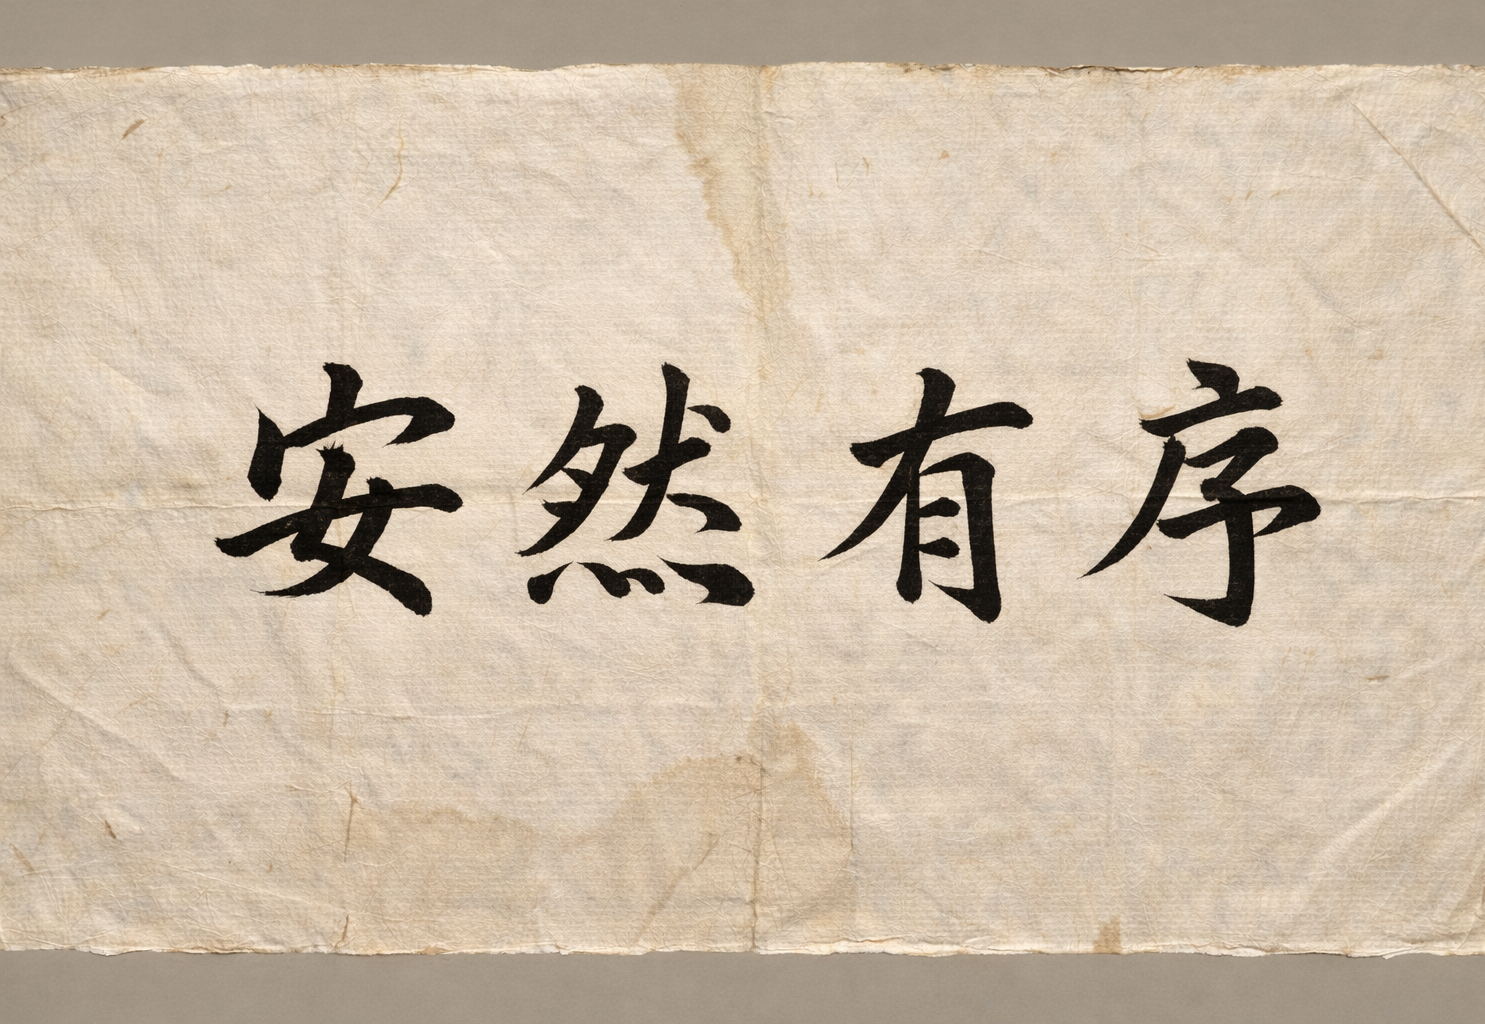 安然有序